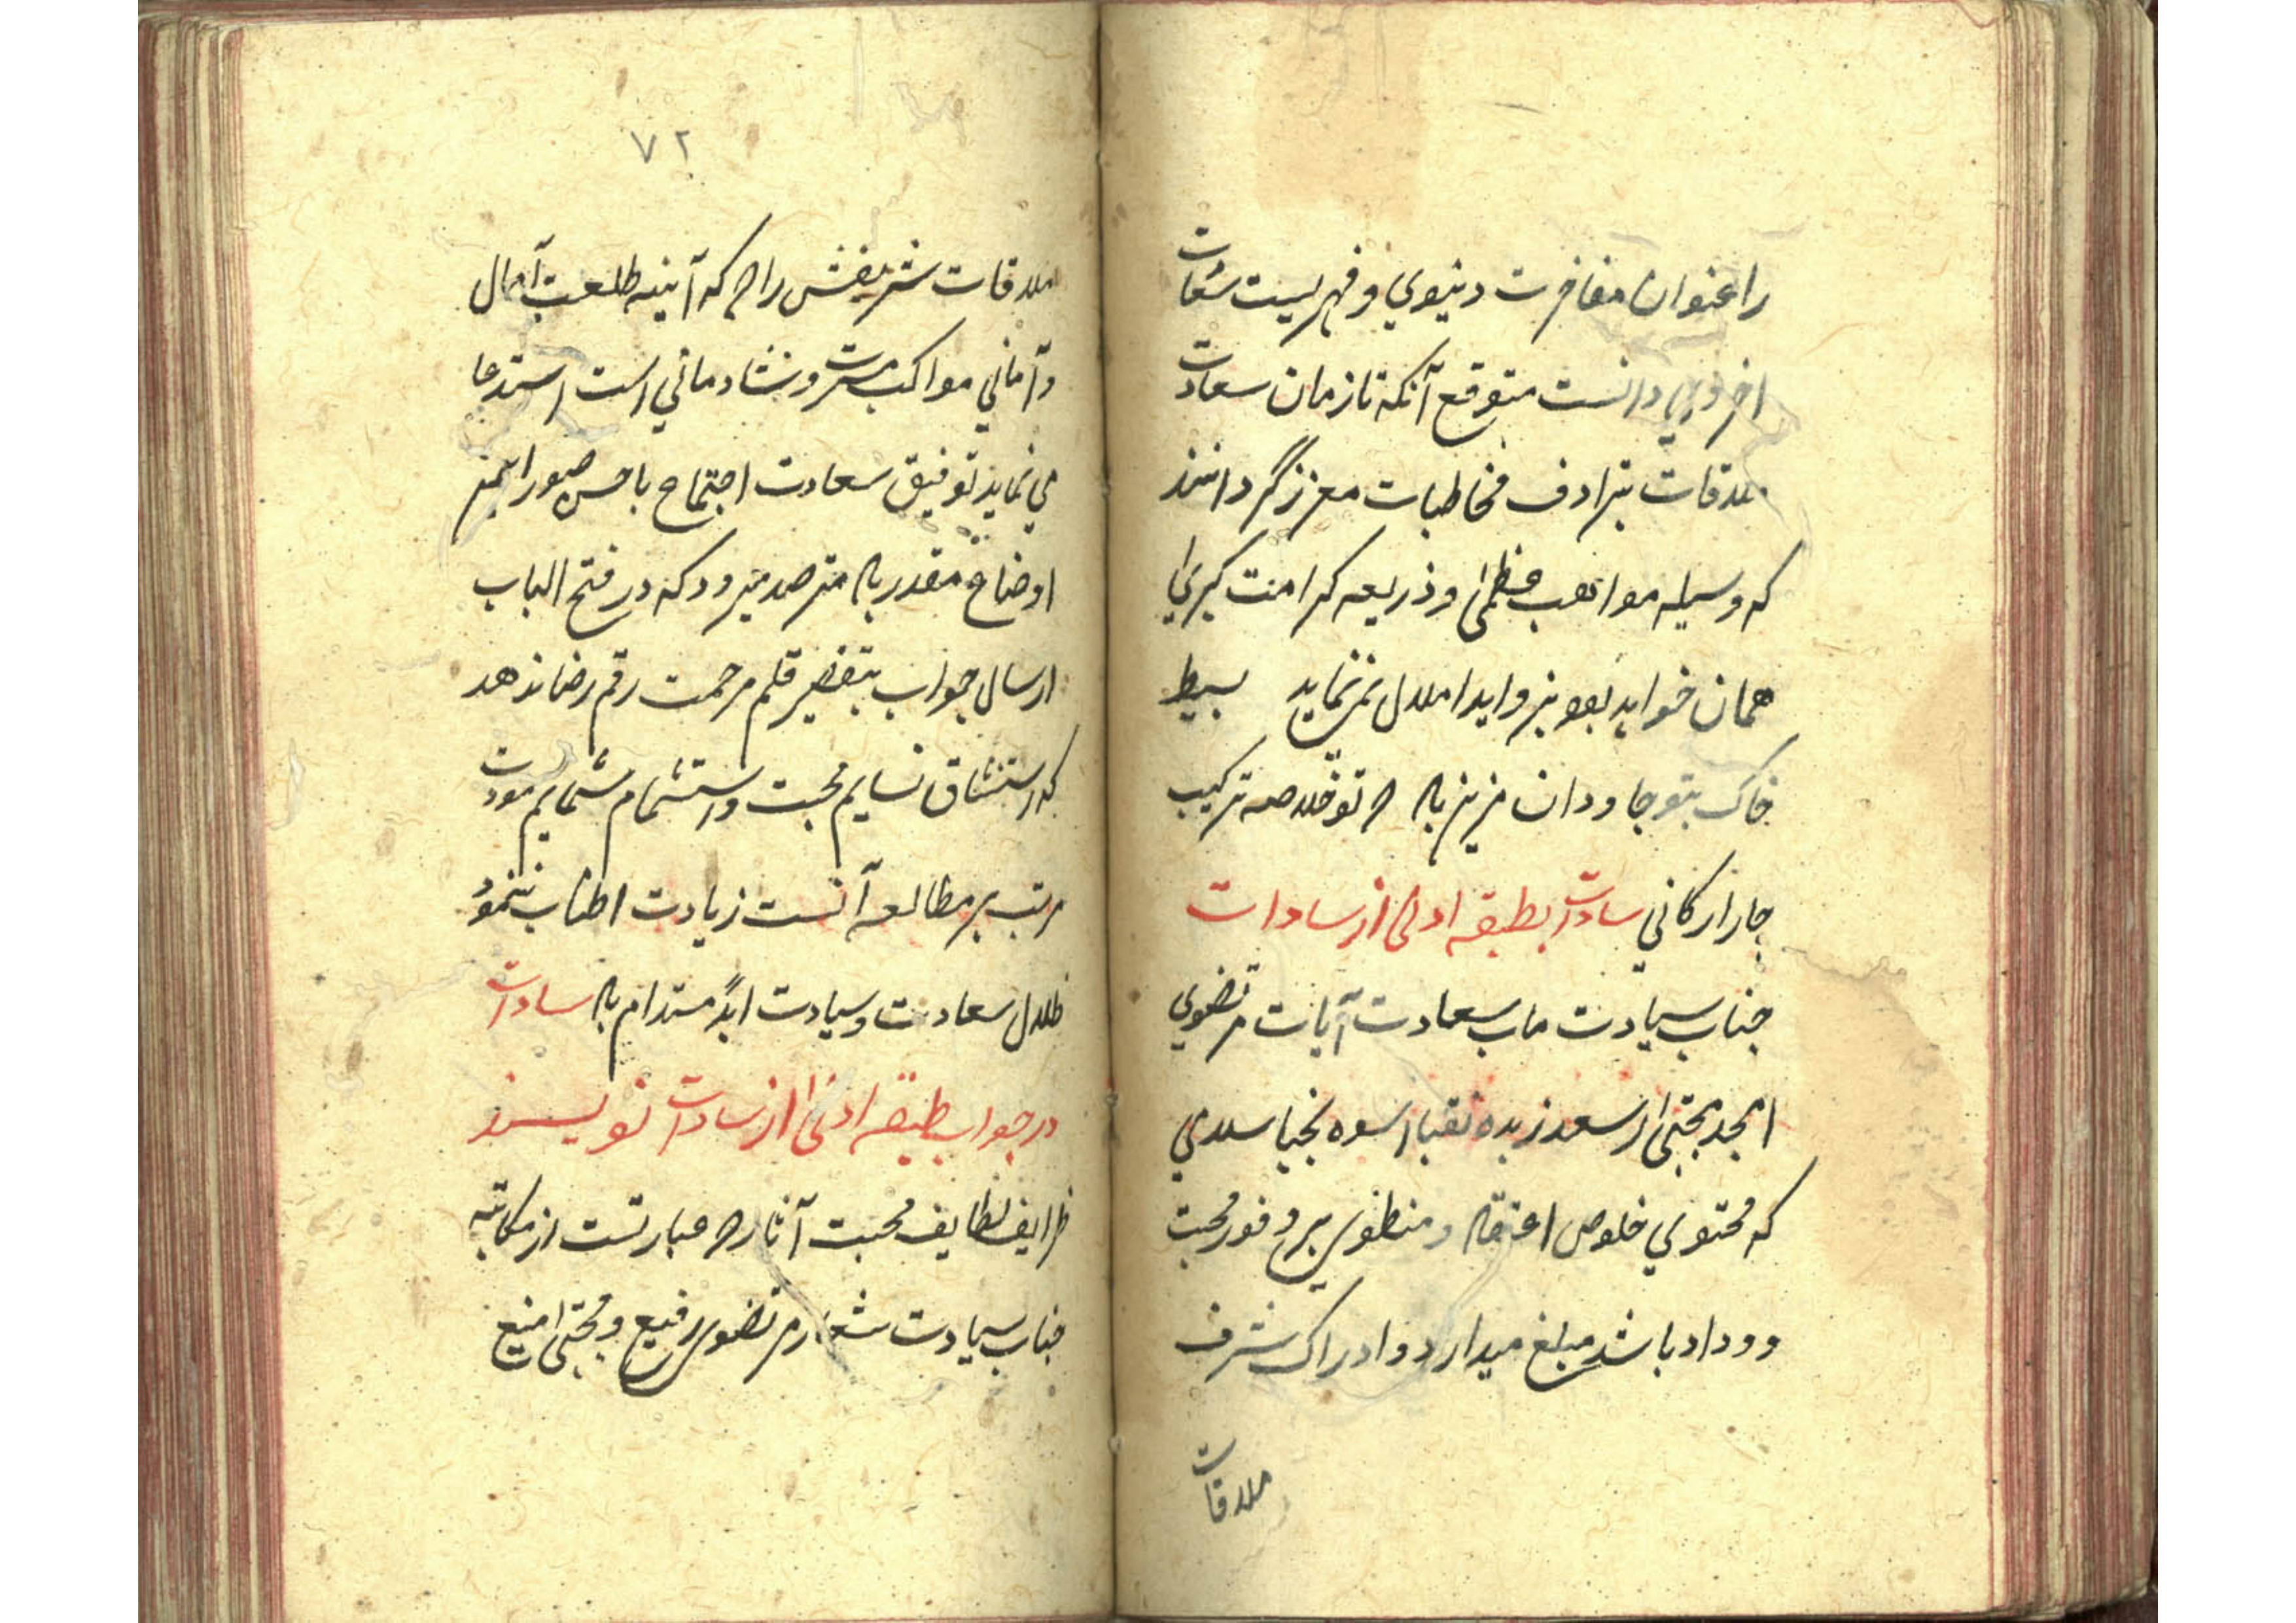 را عنوان مفاخرت دنیوي و فهرست سعادت
اخروي دانست متوقع آنکه تا زمان سعادت
ملاقات بترادف مخاطبات معزز گردانند
که وسیله مواهب عظمی و ذریعه کرامت کبري
همان خواهد بود زواید املال نمي نماید بسیط
خاک بتو جاودان مزین باد تو خلاصه ترکیب
چار ارکاني سادات بطبقه ادنی از سادات
جناب سیادت ماب سعادت آیات مرتضوي
امجد مجتبی اسعد زبده نقبا اسوه نجبا سلامي
که محتوي خلوص اعتقاد و منطوي بر وفور محبت
و وداد باشد مبلغ میدارد و ادراک شرف
ملاقات
٧٢
ملاقات شریفش را که آینه طلعت آمال
و آماني مواکب مسرت و شادماني است استدعا
مي نماید توفیق سعادت اجتماع باحسن صور ایمن
اوضاع مقدر باد مترصد میرود که در فتح الباب
ارسال جواب بتقصیر قلم مرحمت رقم رضا ندهد
که استنشاق نسایم محبت و استشمام شمایم مودت
مرتب بر مطالعه آنست زیادت اطناب ننمود
ظلال سعادت و سیادت ابداً مستدام باد سادات
در جواب طبقه ادنی از سادات نویسند
ظرایف لطایف محبت آثار که عبارتست از مکاتبه
جناب سیادت شعار مرتضوي رفیع و مجتبی منیع